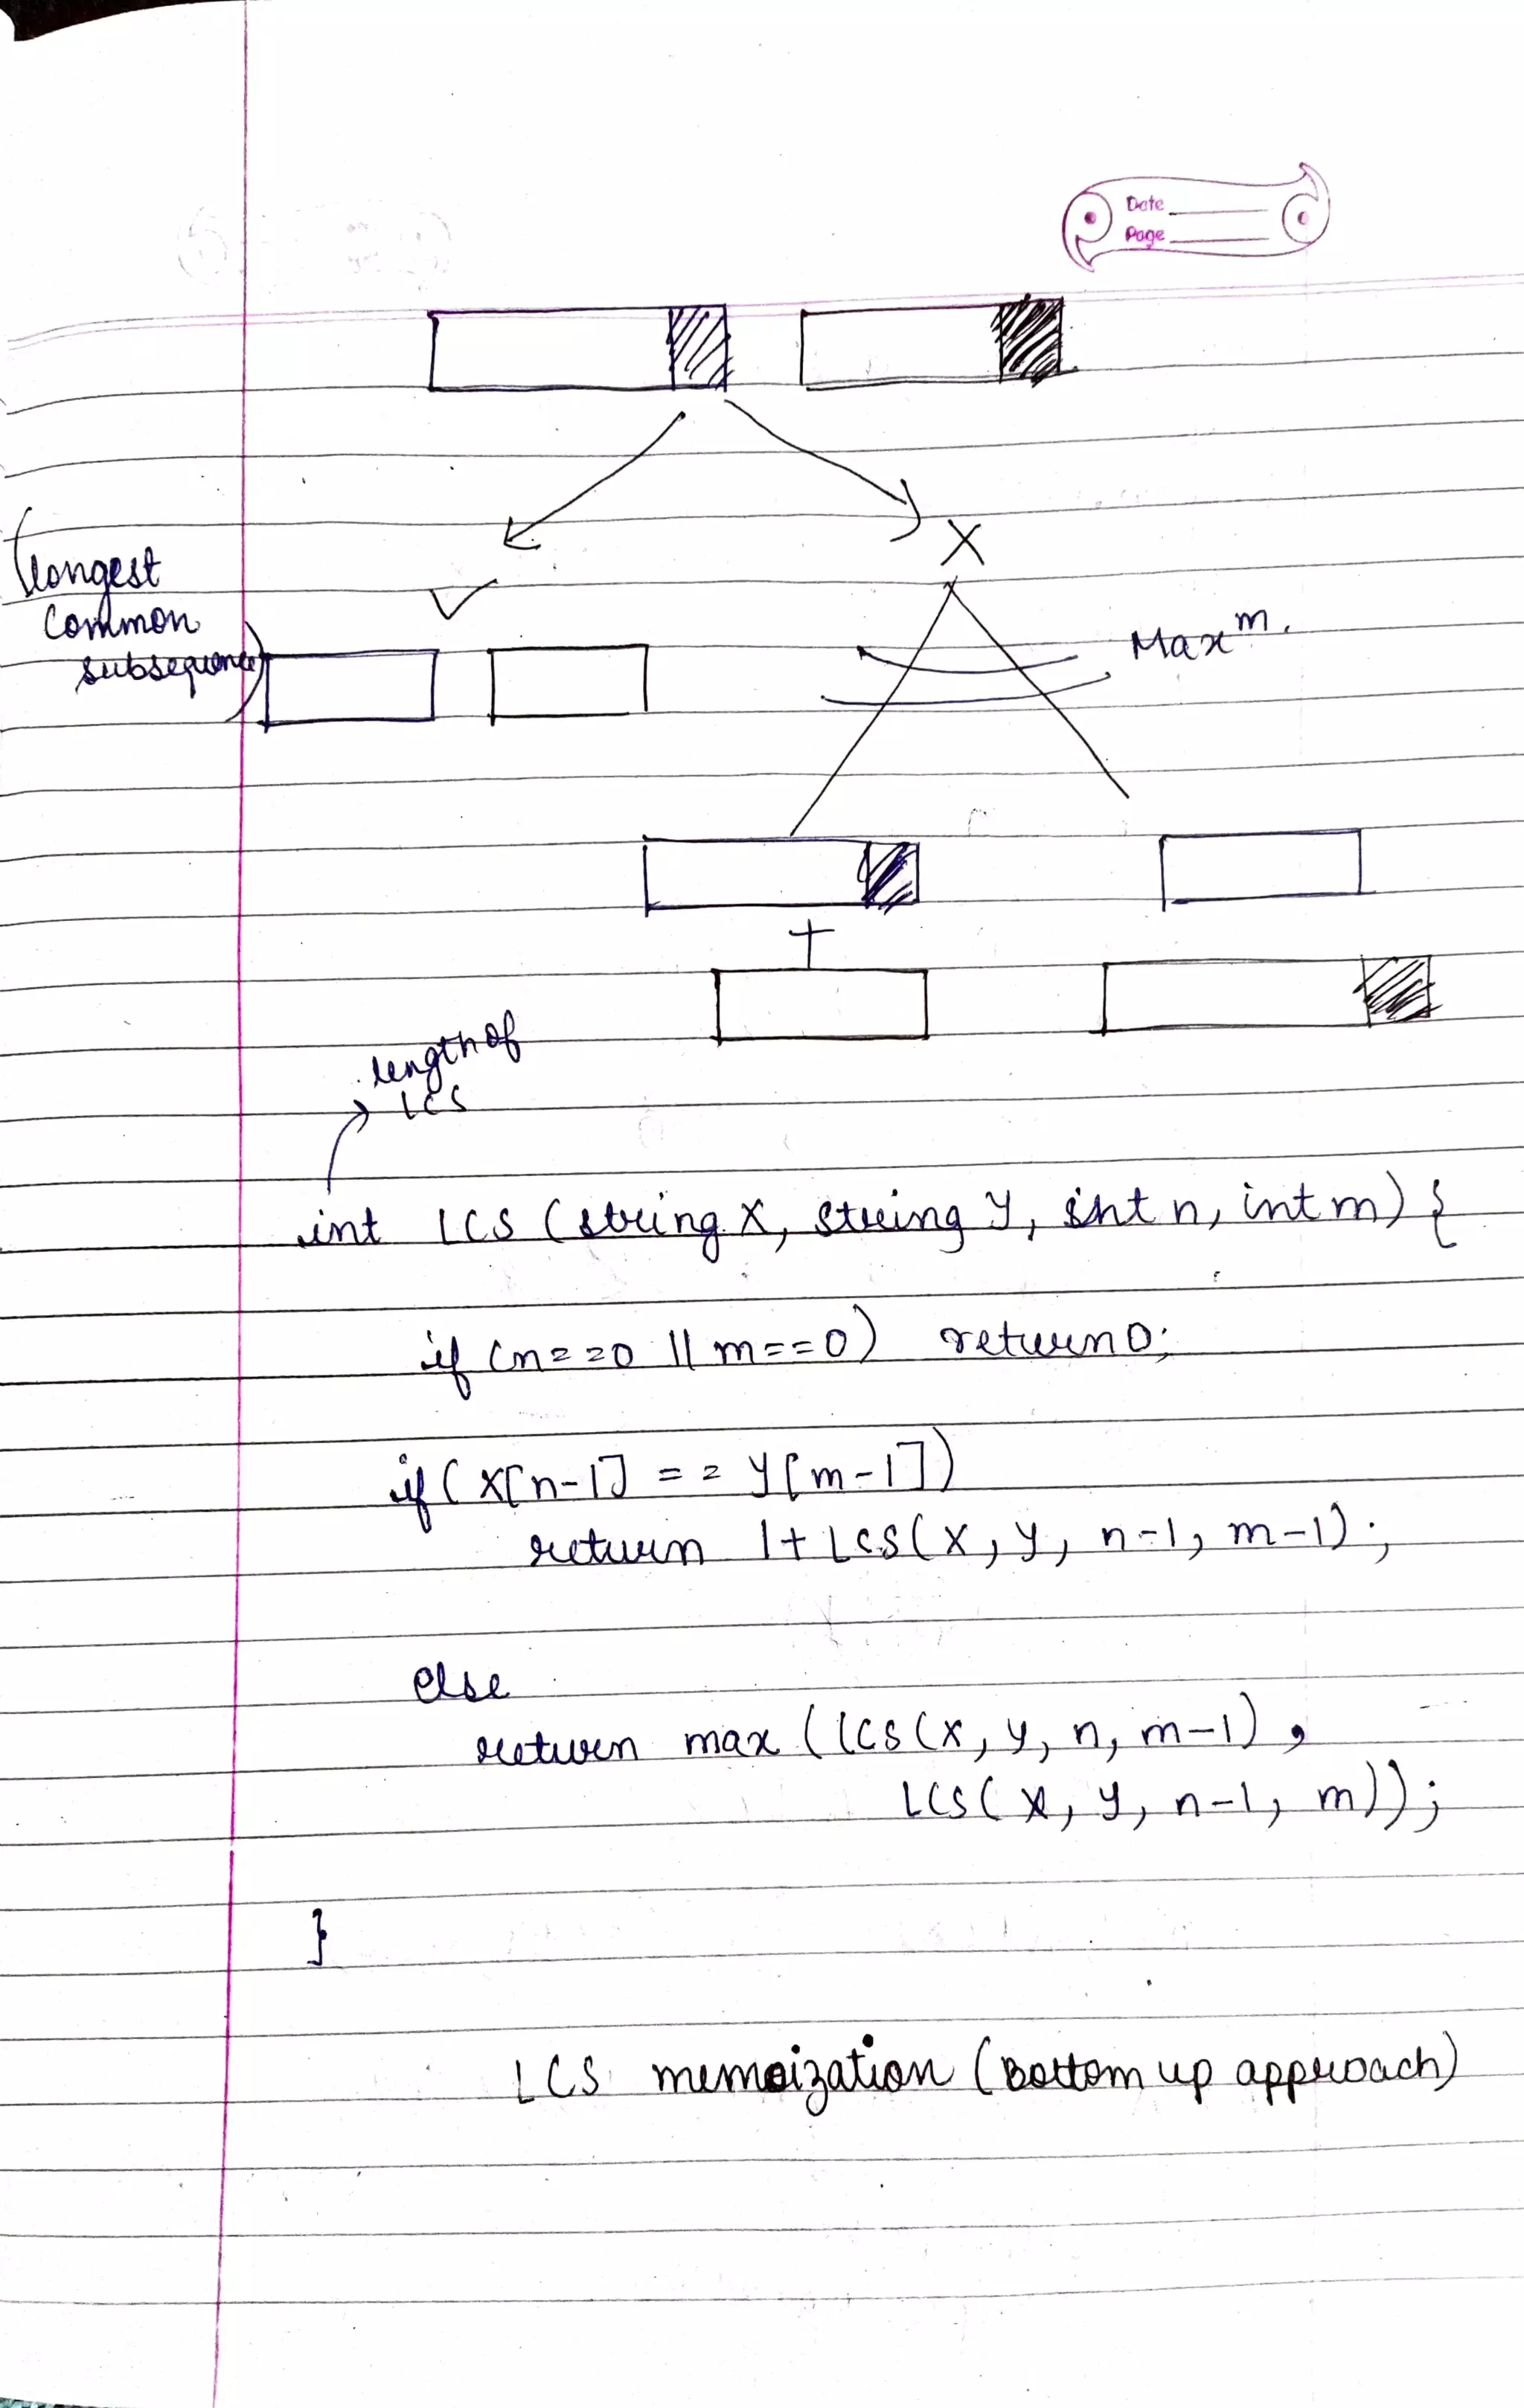 Date
Page
X
(longest
common
subsequence)
Max^m.
+
length of
LCS
int LCS (string X, string Y, int n, int m) {
if (n==0 || m==0) return 0;
if (X[n-1] == Y[m-1])
return 1+LCS(X, Y, n-1, m-1);
else
return max (LCS(X, Y, n, m-1),
LCS(X, Y, n-1, m));
}
LCS memoization (Bottom up approach)